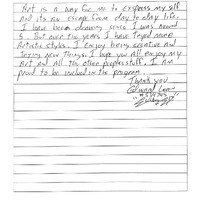 Art is a way for me to express my self
And its an escape from day to day life.
I have been drawing since I was around
5. But over the years I have tryed more
Artistic styles. I enjoy being creative and
trying new things. I hope you all enjoy my
Art and all the other peoples stuff. I am
proud to be involved in the program.
Thank you